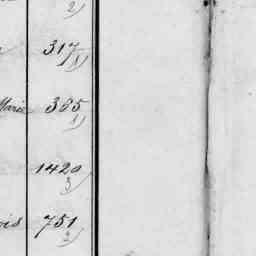 2)
317
1)
Marie 365
1)
1420
3)
ois 751
2)